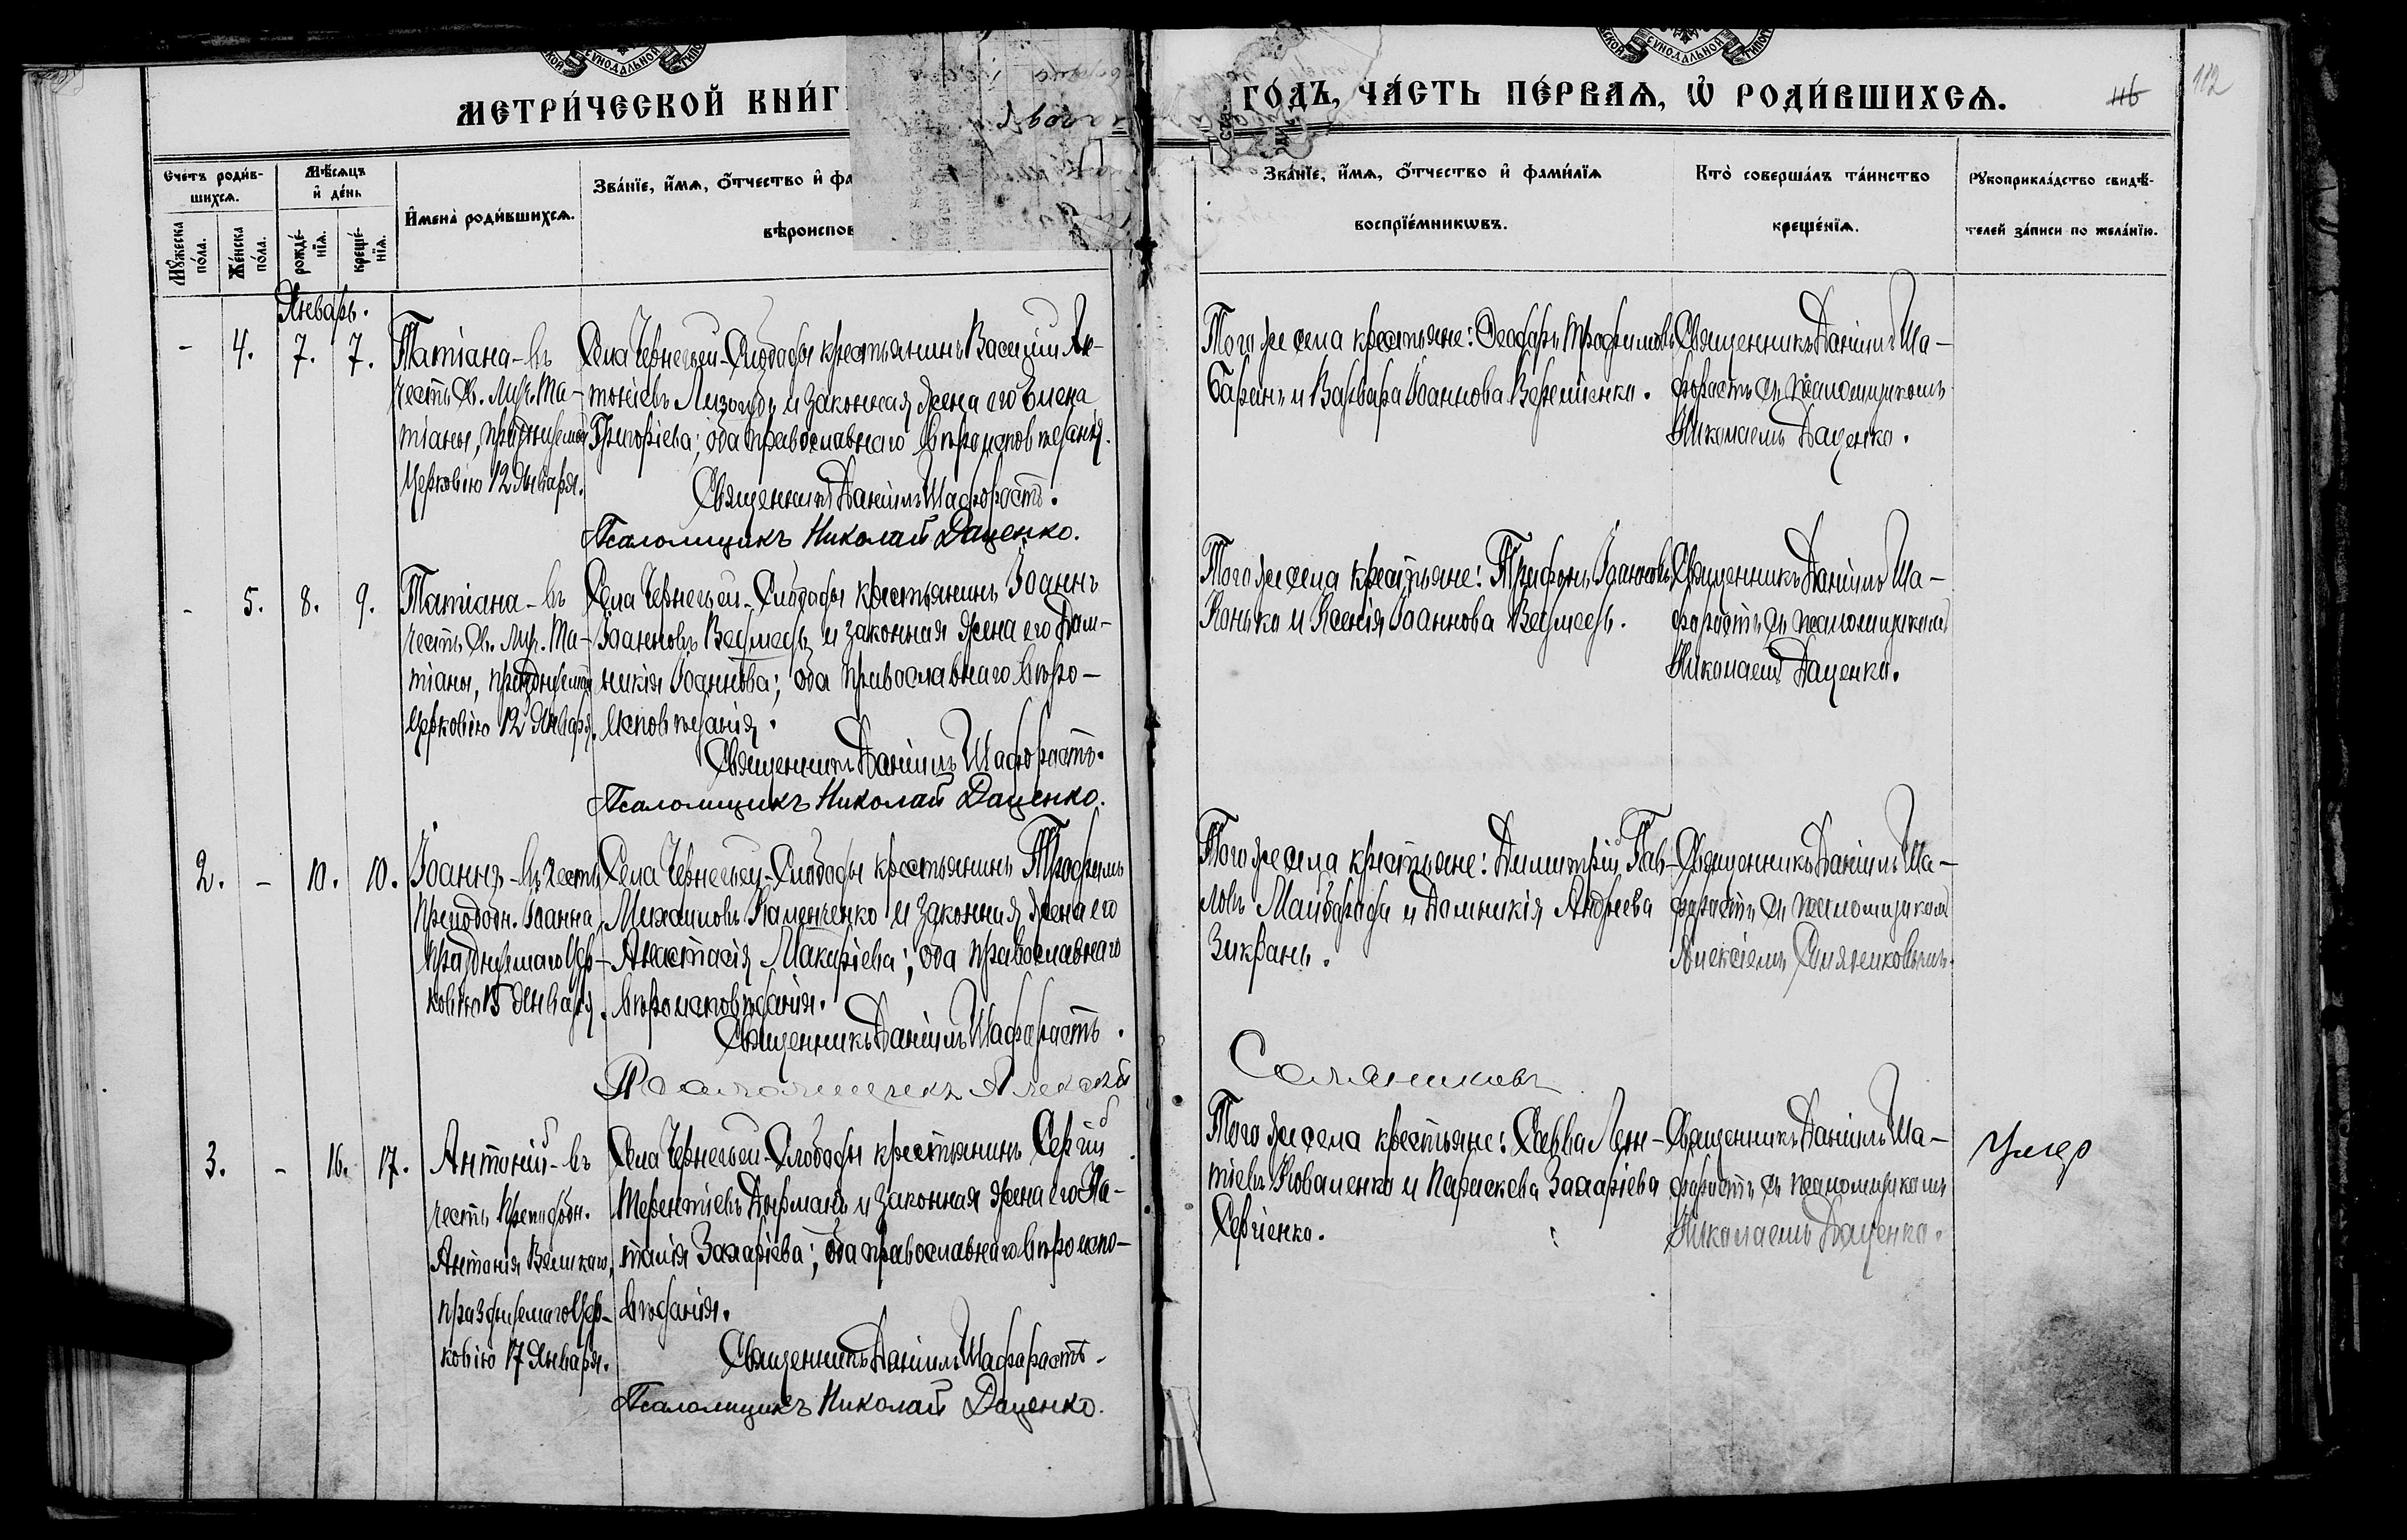 СѴНОДАЛЬНОЙ
СѴНОДАЛЬНОЙ
МЕТРИ́ЧЕСКОЙ КНИ́Г
ГО́ДЪ, ЧА́СТЬ ПЕ́РВАѦ, Ѡ҆ РОДИ́ВШИХСѦ.
116
112
Счетъ роди́в-
шихсѧ.
Мѣ́сѧцъ
и҆ де́нь
Мꙋ́жеска
по́ла.
Же́нска
по́ла.
рожде́-
нїѧ.
креще́-
нїѧ.
И҆мена̀ роди́вшихсѧ.
Зва́нїе, и҆́мѧ, о҆́тчество и҆ фа
вѣроиспов
Зва́нїе, и҆́мѧ, о҆́тчество и҆ фами́лїѧ
воспрїе́мникѡвъ.
Кто̀ соверша́лъ та́инство
креще́нїѧ.
Рꙋкоприкла́дство свидѣ́-
телей за́писи по жела́нїю.
Январь.
- 4. 7. 7.
Татіана - въ
честь Св. Муч. Та-
тіаны, празднуемой
Церковію 12 Января.
Села Чернечьей-Слободы крестьянинъ Василій Ан-
тоніевъ Лизогубъ и законная жена его Елена
Григоріева; оба православнаго вѣроисповѣданія.
Священникъ Даніилъ Шафорастъ.
Псаломщикъ Николай Даценко.
Того же села крестьяне: Ѳеодоръ Трофимовъ
Баранъ и Варвара Іоаннова Веремѣенко.
Священникъ Даніилъ Ша-
форастъ съ псаломщикомъ
Николаемъ Даценко.
- 5. 8. 9.
Татіана - въ
честь Св. Муч. Та-
тіаны, празднуемой
Церковію 12 Января.
Села Чернечьей-Слободы крестьянинъ Іоаннъ
Іоанновъ Ведмедь и законная жена его Дом-
никія Іоаннова; оба православнаго вѣро-
исповѣданія.
Священникъ Даніилъ Шафорастъ.
Псаломщикъ Николай Даценко.
Того же села крестьяне: Трифонъ Іоанновъ
Конько и Ксенія Іоаннова Ведмедь.
Священникъ Даніилъ Ша-
форастъ съ псаломщикомъ
Николаемъ Даценко.
2. - 10. 10.
Іоаннъ - въ честь
Преподобн. Іоанна
празднуемаго Цер-
ковію 15 Января.
Села Чернечьей-Слободы крестьянинъ Трофимъ
Михаиловъ Каменченко и законная жена его
Анастасія Макаріева; оба православнаго
вѣроисповѣданія.
Священникъ Даніилъ Шафорастъ.
Псаломщикъ Алексѣй
Того же села крестьяне: Димитрій Пав-
ловъ Майборода и Домникія Андреева
Зикрань.
Соляниковъ
Священникъ Даніилъ Ша-
форастъ съ псаломщикомъ
Алексіемъ
3. - 16. 17.
Антоній - въ
честь Преподобн.
Антонія Великаго,
празднуемаго Цер-
ковію 17 Января.
Села Чернечьей-Слободы крестьянинъ Сергій
Терентіевъ и законная жена его На-
талія Захаріева; оба православнаго вѣроиспо-
вѣданія.
Священникъ Даніилъ Шафорастъ.
Псаломщикъ Николай Даценко.
Того же села крестьяне: Савва Леон-
тіевъ Коваленко и Параскева Захаріева
Сергіенко.
Священникъ Даніилъ Ша-
форастъ съ псаломщикомъ
Николаемъ Даценко.
Умер